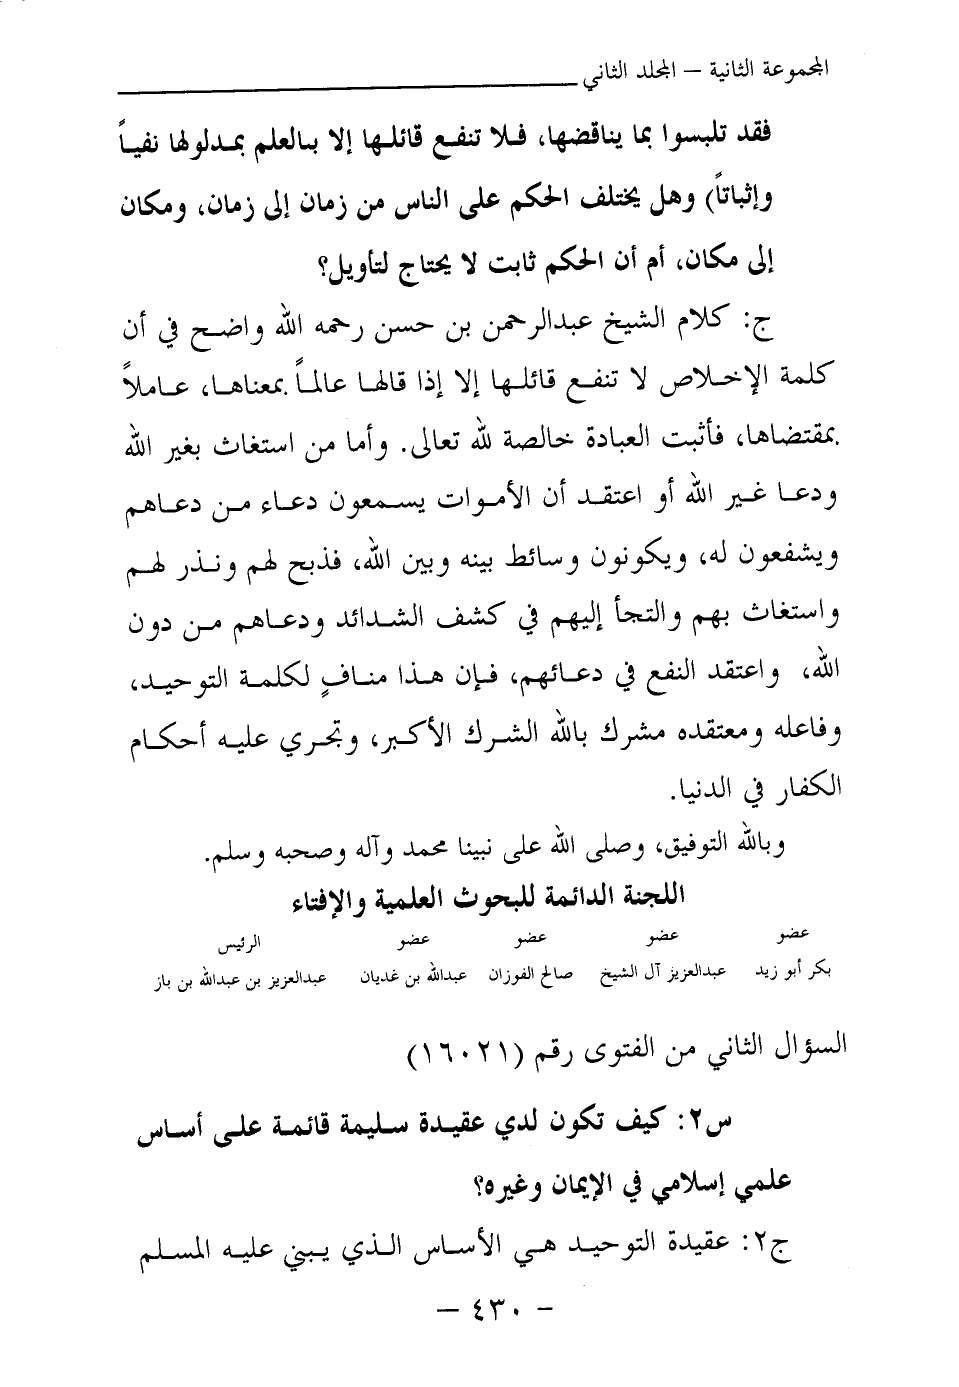 المجموعة الثانية – المجلد الثاني
فقد تلبسوا بما يناقضها، فلا تنفع قائلها إلا بالعلم بمدلولها نفياً
وإثباتاً) وهل يختلف الحكم على الناس من زمان إلى زمان، ومكان
إلى مكان، أم أن الحكم ثابت لا يحتاج لتأويل؟
ج: كلام الشيخ عبدالرحمن بن حسن رحمه الله واضح في أن
كلمة الإخلاص لا تنفع قائلها إلا إذا قالها عالماً بمعناها، عاملاً
بمقتضاها، فأثبت العبادة خالصة لله تعالى. وأما من استغاث بغير الله
ودعا غير الله أو اعتقد أن الأموات يسمعون دعاء من دعاهم
ويشفعون له، ويكونون وسائط بينه وبين الله، فذبح لهم ونذر لهم
واستغاث بهم والتجأ إليهم في كشف الشدائد ودعاهم من دون
الله، واعتقد النفع في دعائهم، فإن هذا منافٍ لكلمة التوحيد،
وفاعله ومعتقده مشرك بالله الشرك الأكبر، وتجري عليه أحكام
الكفار في الدنيا.
وبالله التوفيق، وصلى الله على نبينا محمد وآله وصحبه وسلم.
اللجنة الدائمة للبحوث العلمية والإفتاء
عضو عضو عضو عضو الرئيس
بكر أبو زيد عبدالعزيز آل الشيخ صالح الفوزان عبدالله بن غديان عبدالعزيز بن عبدالله بن باز
السؤال الثاني من الفتوى رقم (١٦٠٢١)
س٢: كيف تكون لدي عقيدة سليمة قائمة على أساس
علمي إسلامي في الإيمان وغيره؟
ج٢: عقيدة التوحيد هي الأساس الذي يبني عليه المسلم
– ٤٣٠ –